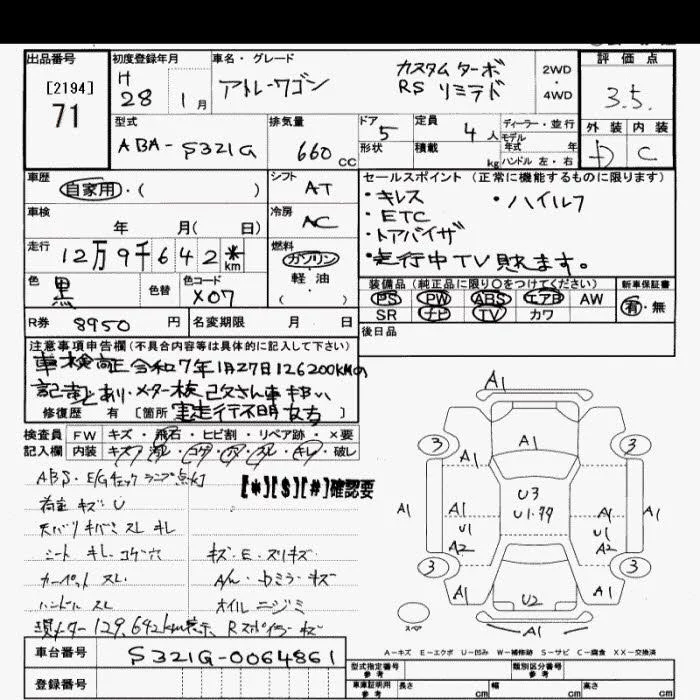 出品番号 初度登録年月 車名・グレード 評価点
[2194] 71
H 28 1月
アトレーワゴン カスタムターボ RS リミテド
2WD・4WD
3.5
外装 内装
D C
型式 排気量 ドア 定員 ディーラー・並行
ABA-S321G 660cc 5 4人
モデル年式 年
形状 積載 kg ハンドル 左・右
車歴 シフト セールスポイント(正常に機能するものに限ります)
自家用・( ) AT
・キレス ・ハイルフ
・ETC
・トアバイザ
・走行中TV映ます。
車検 冷房
年 月( 日) AC
走行 燃料
12万9千642*km
ガソリン
軽・油
・( )
色 色替 色コード
黒 X07
装備品(純正品に限り○をつけてください) 新車保証書
PS PW ABS エアB AW 有・無
SR ナビ TV カワ
R券 8950円 名変期限 月 日
後日品
注意事項申告欄(不具合内容等は具体的に記入して下さい)
車検証令和7年1月27日126200KMの
記載あり・メター
修復歴 有 [箇所 走行不明
検査員 FW キズ・飛石・ヒビ割・リペア跡・×要
記入欄 内装 キズ・汚レ・コゲ・穴・スレ・キレ・破レ
ABS・E/Gチェックランプ点灯
[*][$][#]確認要
キズ U
スレ キレ
シート キレ コゲ穴 キズ・E・スリキズ
カーペット スレ A/M・カミラ・キズ
ハンドル スレ オイルニジミ
現メーター129,642km表示 Rスポイラーキズ
A1
3 3
A1
U3
U1.99
A1 A1 A1 A1
U1 U1
A2 A2
3 3
A1 A1
U2
スペア
A1
A-キズ E-エクボ U-凹み W-補修跡 S-サビ C-腐食 XX-交換済
車台番号 S321G-0064861
登録番号
型式指定番号 参考 類別区分番号 参考
車庫証明用 参考 長さ cm 幅 cm 高さ cm